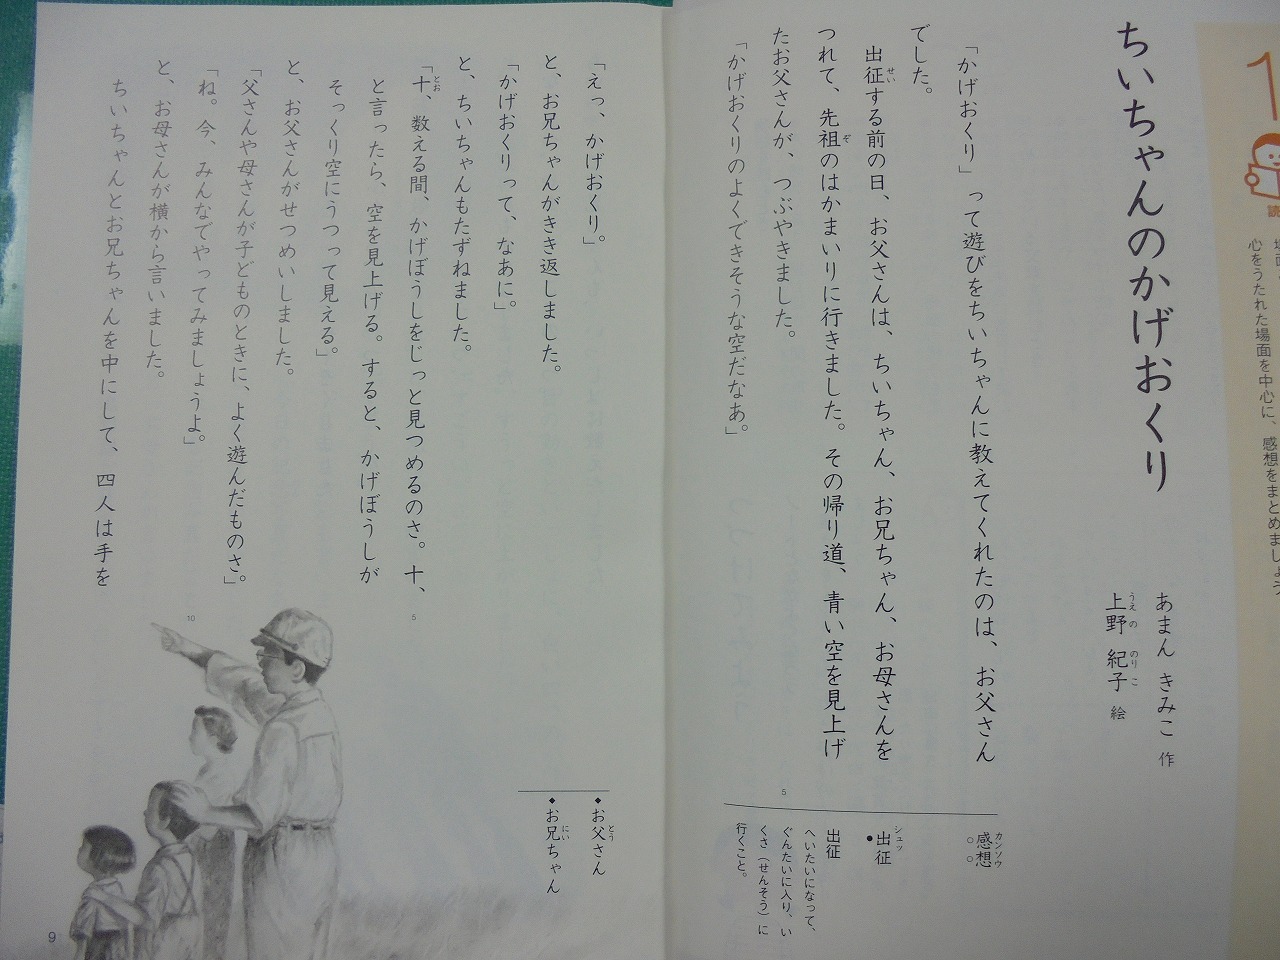 1
読
心をうたれた場面を中心に、感想をまとめましょう
ちいちゃんのかげおくり
あまん きみこ 作
上野 紀子 絵
うえ の のり こ
「かげおくり」って遊びをちいちゃんに教えてくれたのは、お父さん
でした。
出征する前の日、お父さんは、ちいちゃん、お兄ちゃん、お母さんを
せい
つれて、先祖のはかまいりに行きました。その帰り道、青い空を見上げ
ぞ
たお父さんが、つぶやきました。
「かげおくりのよくできそうな空だなあ。」
5
感想
カンソウ
出征
シュッ
出征
へいたいになって、
ぐんたいに入り、い
くさ（せんそう）に
行くこと。
「えっ、かげおくり。」
と、お兄ちゃんがきき返しました。
「かげおくりって、なあに。」
と、ちいちゃんもたずねました。
「十、数える間、かげぼうしをじっと見つめるのさ。十、
とお
と言ったら、空を見上げる。すると、かげぼうしが
そっくり空にうつって見える。」
と、お父さんがせつめいしました。
「父さんや母さんが子どものときに、よく遊んだものさ。」
「ね。今、みんなでやってみましょうよ。」
と、お母さんが横から言いました。
ちいちゃんとお兄ちゃんを中にして、四人は手を
5
10
◆お父さん
とう
◆お兄ちゃん
にい
9